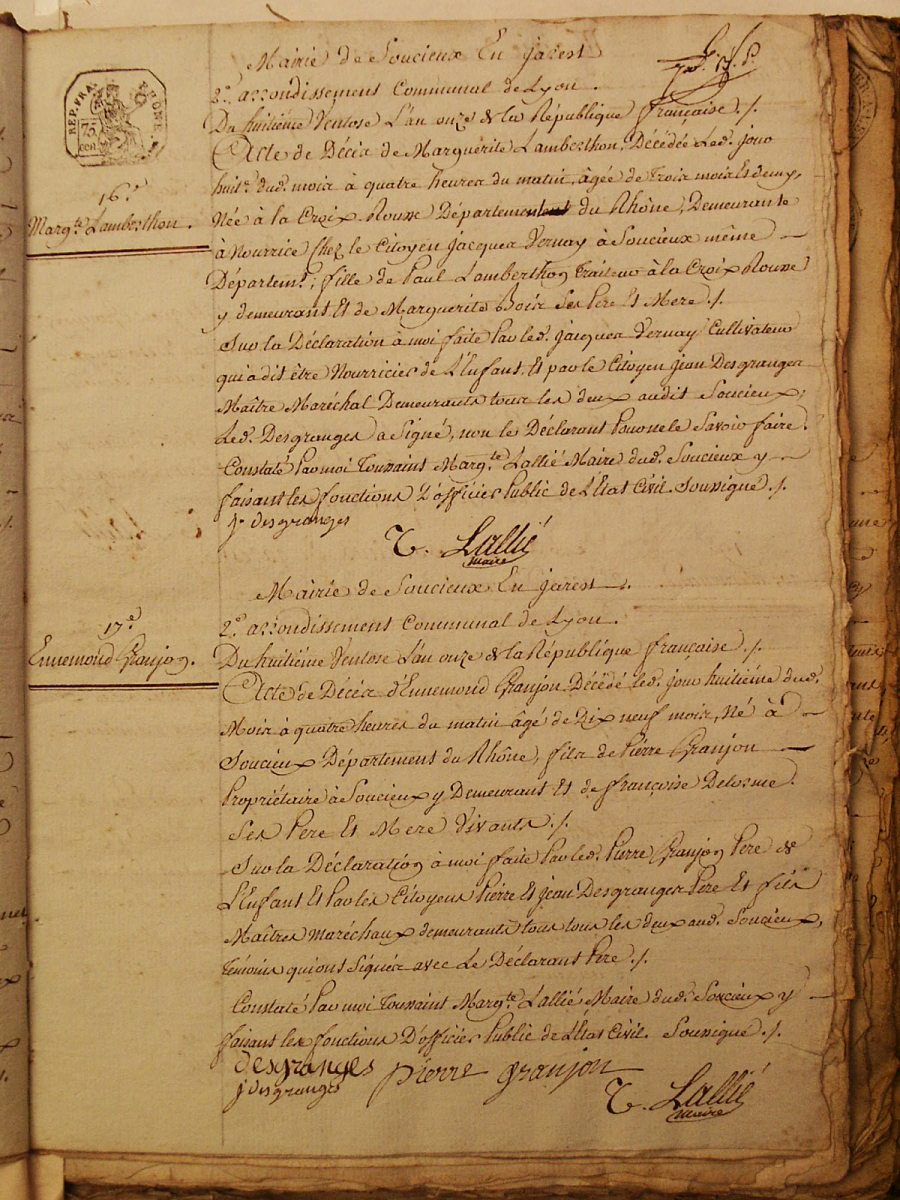 Mairie de Soucieux En jarest
2e. arrondissement Communal de Lyon.
Du huitième Ventose L'an onze de la République française ./.
REP. FRA.
75
cen
16e.
Marg.te Lamberthon.
Acte de Décès de Marguérite Lamberthon, Décédée Led. jour
huit. dud. mois à quatre heures du matin, âgée de Trois mois Et deux,
Née à la Croix-Rousse Département du Rhône, Demeurante
à Nourrice Chez le Citoyen jacques Vernay à Soucieux même
Départemt.; fille de Paul Lamberthon Traiteur à la Croix Rousse
y demeurant Et de Marguerite Bois Ses Pere Et Mere ./.
Sur la Déclaration à moi faite Par led. jacques Vernay Cultivateur
qui a dit être Nourricier de L'Enfant, Et par le Citoyen jean Desgranges
Maître Maréchal Demeurants tous les deux audit Soucieux;
Led. Desgranges a Signé, non le Déclarant Pour ne le Savoir faire.
Constaté Par moi Toussaint Marg.te Lallié Maire dud. Soucieux y
faisant les fonctions D'officier Public de L'Etat Civil. Soussigné ./.
j. desgranges
T. Lallié
Maire
Mairie de Soucieux En jarest
2e. arrondissement Communal de Lyon.
17e.
Ennemond Granjon.
Du huitième Ventose L'an onze de la République française ./.
Acte de Décès d'Ennemond Granjon Décédé led. jour huitième dud.
Mois à quatre heures du matin âgé de Dix neuf mois, Né à
Soucieux Département du Rhône, fils de Pierre Granjon
Propriétaire à Soucieux y Demeurant Et de françoise Delorme
Ses Pere Et Mere Vivants ./.
Sur la Déclaration à moi faite Par led. Pierre Granjon Pere de
L'Enfant Et Par les Citoyens Pierre Et jean Desgranges Pere Et fils
Maîtres Maréchaux demeurants tous tous les deux aud. Soucieux,
Témoins qui ont Signés avec Le Déclarant Pere ./.
Constaté Par moi Toussaint Marg.te Lallié Maire dud. Soucieux y
faisant les fonctions D'officier Public de L'Etat Civil. Soussigné ./.
desgranges pierre granjon
j desgranges
T. Lallié
Maire